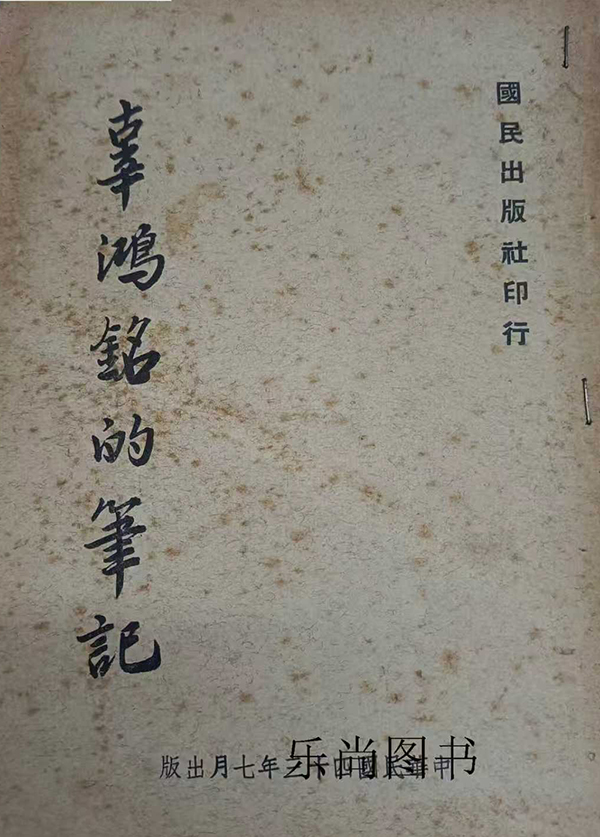 國民出版社印行
辜鴻銘的筆記
中華民國四十年七月出版
乐尚图书